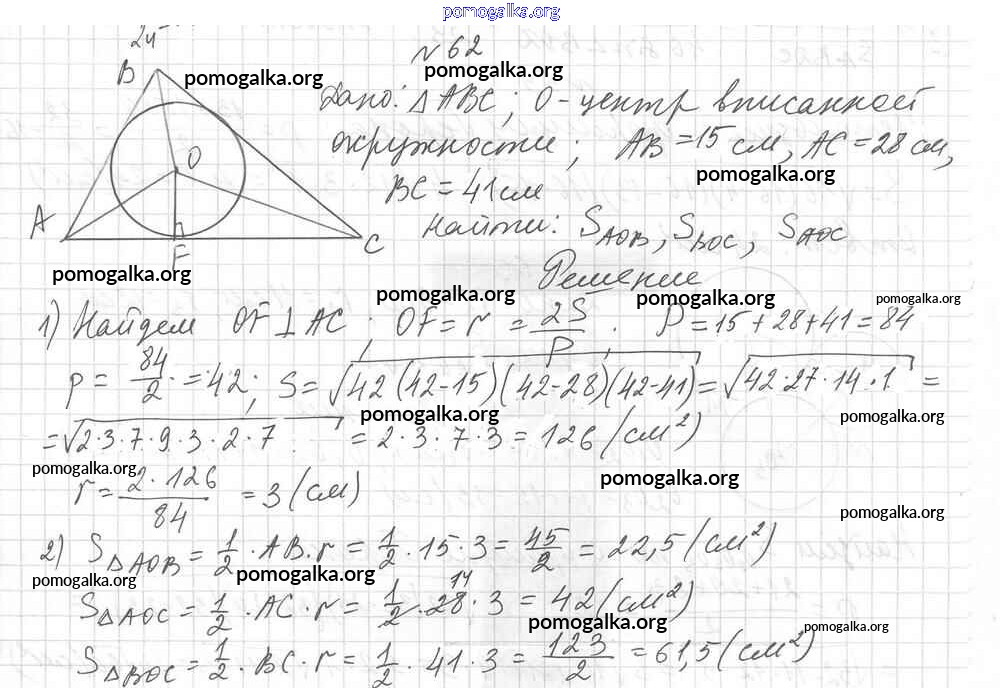 pomogalka.org
24
N 62
B
pomogalka.org
pomogalka.org
Дано: △ABC; O-центр вписанной
O
окружности; AB = 15 см, AC = 28 см,
pomogalka.org
BC = 41 см
A
F
C
Найти: S_AOB, S_BOC, S_AOC
pomogalka.org
Решение
pomogalka.org
pomogalka.org
pomogalka.org
1) Найдем OF ⊥ AC; OF = r = 2S/P. P = 15 + 28 + 41 = 84
p = 84/2 = 42; S = √(42(42-15)(42-28)(42-41)) = √(42·27·14·1) =
pomogalka.org
pomogalka.org
= √(2·3·7·9·3·2·7) = 2·3·7·3 = 126 (см²)
pomogalka.org
pomogalka.org
r = 2·126/84 = 3 (см)
pomogalka.org
2) S△AOB = 1/2 · AB · r = 1/2 · 15 · 3 = 45/2 = 22,5 (см²)
pomogalka.org
pomogalka.org
S△AOC = 1/2 · AC · r = 1/2 · 28 14 · 3 = 42 (см²)
pomogalka.org
pomogalka.org
S△BOC = 1/2 · BC · r = 1/2 · 41 · 3 = 123/2 = 61,5 (см²)